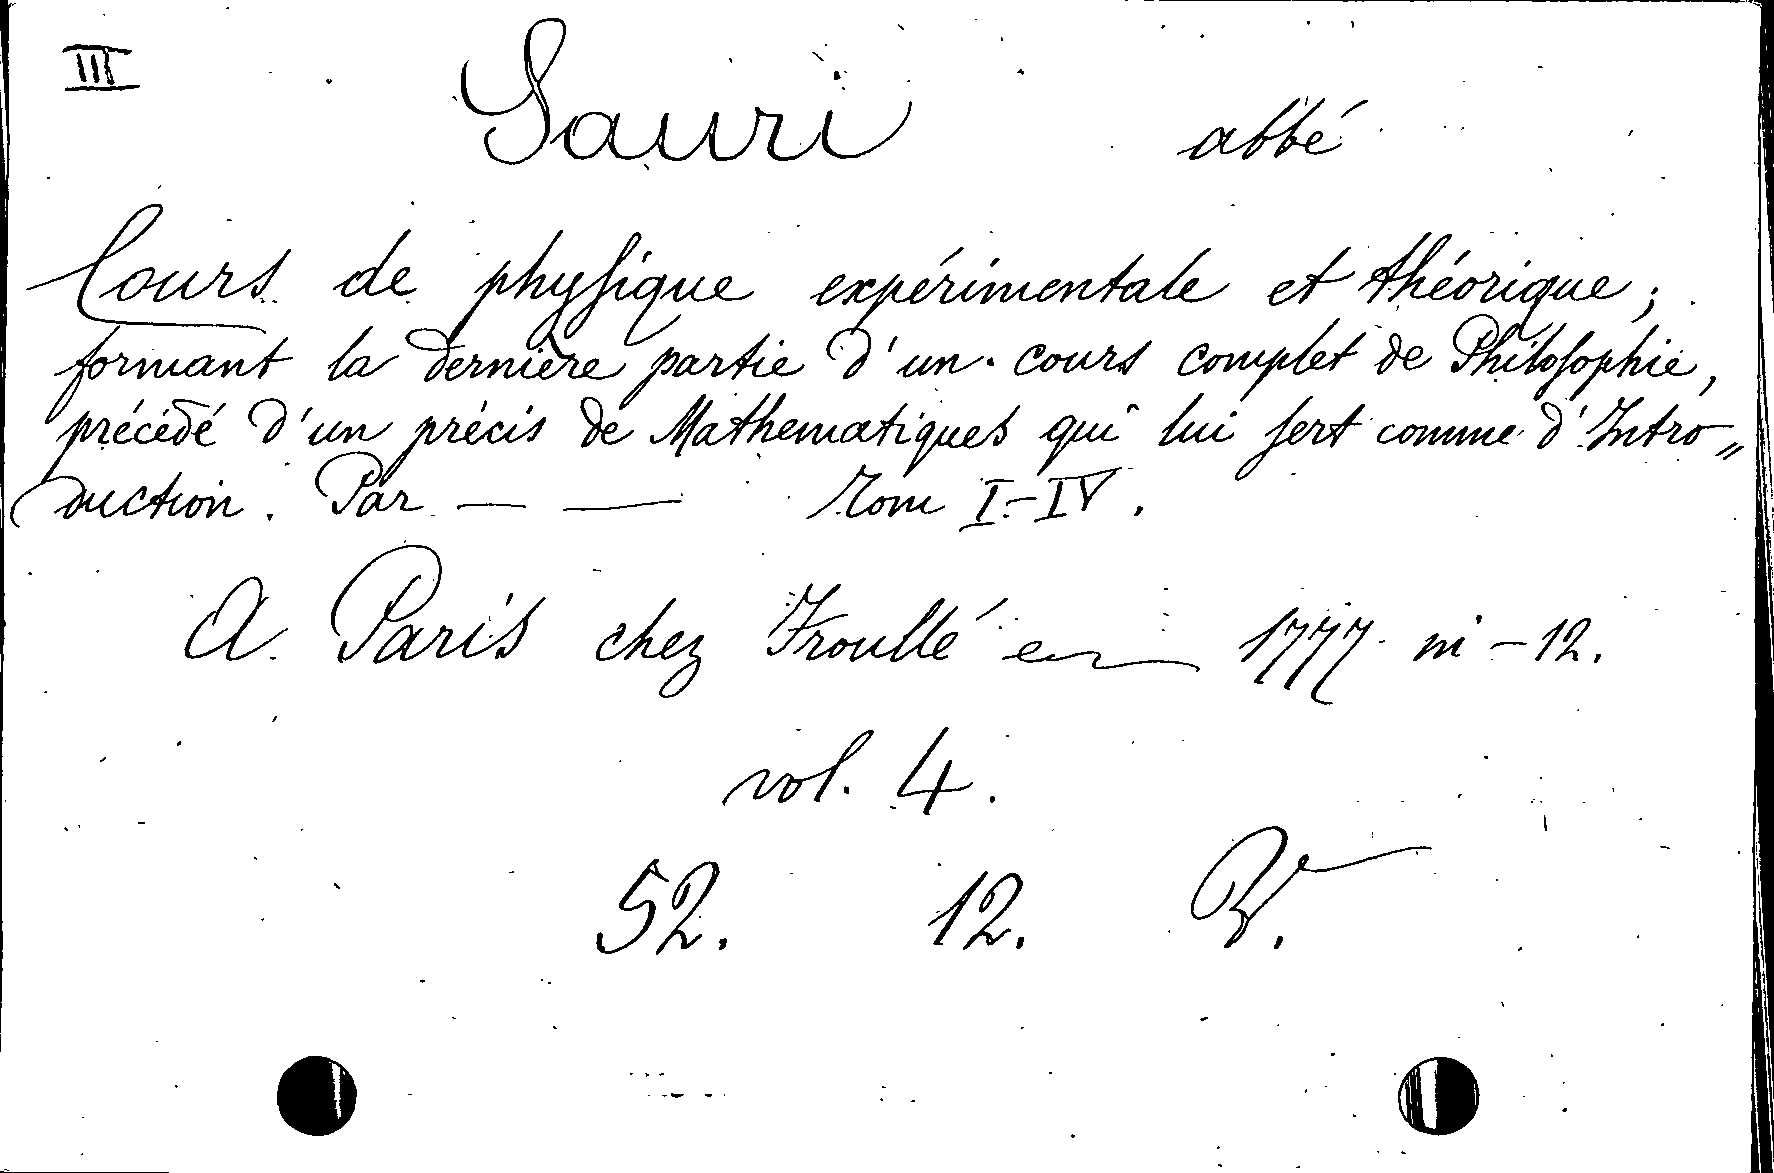 III
Sauri abbé
Cours de phyſique expérimentale et théorique;
formant la dernière partie d'un cours complet de Philoſophie,
précédé d'un précis de Mathematiques qui lui ſert comme d'Intro„
duction. Par — — Tom I-IV.
A Paris chez Froullé en 1777 in-12.
vol. 4.
52. 12.